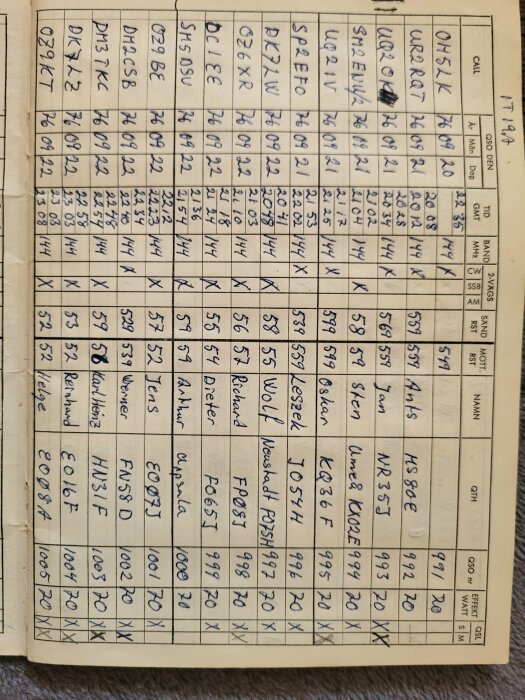 IT19A
CALL QSO DEN År Mån Dag TID GMT BAND MHz 2-VÄGS CW SSB AM SÄND RST MOTT. RST NAMN QTH QSO nr EFFEKT WATT QSL S M
OH5LK 76 09 20 22 35 144 X 549 991 20
UR2RQT 76 09 21 20 08 20 12 144 X 559 559 Ants MS80E 992 20
UQ2OK 76 09 21 20 28 20 34 144 X 569 559 Jan NR35J 993 20 X X
76 09 21 21 02 21 04 144 X 58 59 Sten Umeå KX02E 994 20 X
UQ2IV 76 09 21 21 17 21 25 144 X 599 599 Oskar KQ36F 995 20 X X
SP2EFO 76 09 21 21 53 22 02 144 X 539 559 Leszek JO54H 996 20 X
DK7LW 76 09 22 20 41 144 X 58 55 Wolf Neustadt 997 20 X
OZ6XR 76 09 22 21 03 21 10 144 X 56 57 Richard FP08J 998 20 X
DC1EE 76 09 22 21 18 21 24 144 X 55 54 Dieter FO65J 999 20 X
SM5DSV 76 09 22 21 36 21 54 144 X 59 59 Arthur Uppsala 1000 20
OZ9BE 76 09 22 22 12 22 23 144 X 57 52 Jens EO07J 1001 20 X
DM2CSB 76 09 22 22 34 144 X 529 539 Werner FN58D 1002 20 X
DM3TKC 76 09 22 22 57 144 X 59 58 Karl Heinz HN31F 1003 20 X X
DK7LZ 76 09 22 22 58 23 03 144 X 53 52 Reinhard EO16F 1004 20 X X
OZ9KT 76 09 22 23 03 23 08 144 X 52 52 Helge EO08A 1005 20 X X